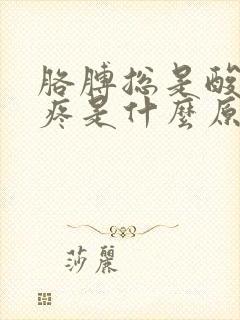 胳膊总是酸
疼是什麼原
莎麗